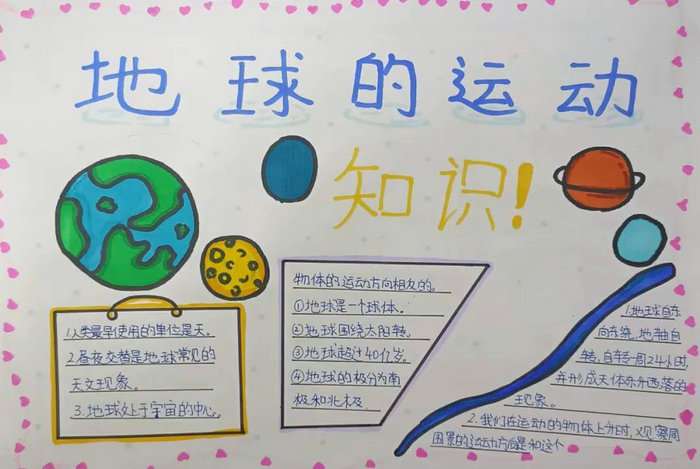 地球的运动
知识!
1.人类最早使用的单位是天。
2.昼夜交替是地球常见的
天文现象。
3.地球处于宇宙的中心。
物体的运动方向相反的。
①地球是一个球体。
②地球围绕太阳转。
③地球超过40亿岁。
④地球的极分为南
极和北极.
1.地球自东
向东绕,地轴自
转,自转一周24小时,
并形成天体东升西落的
现象。
2.我们在运动的物体上外时,观察周
围景的运动方向是和这个